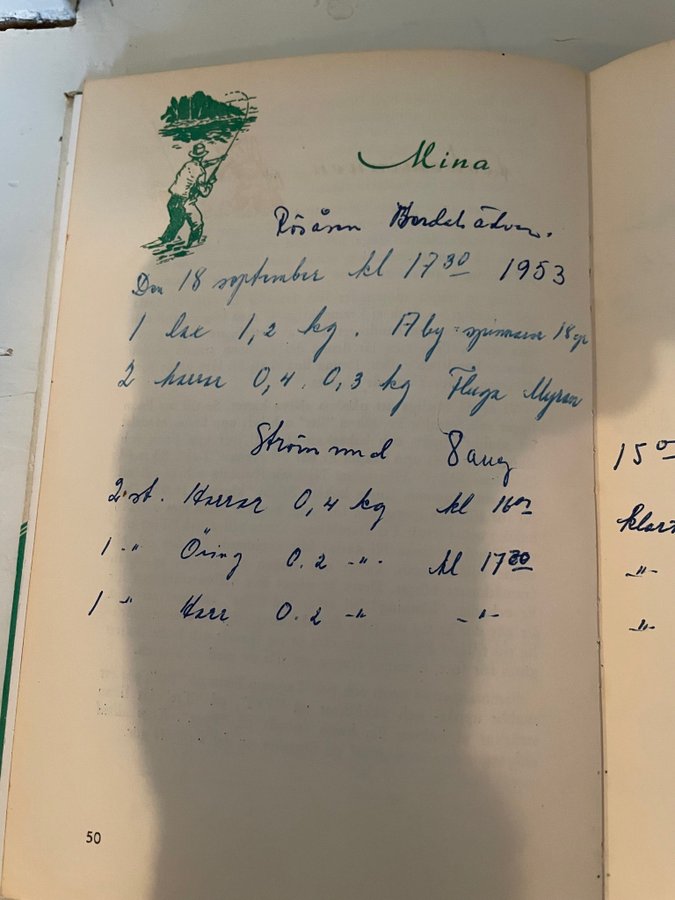 Mina
Rösåsen
Den 18 september kl 17 30 1953
1 lax 1,2 kg. 17 by = spinnare 18 gr
2 harrar 0,4 0,3 kg Fluga Myran
Strömsund 8 aug
2 st. Harrar 0,4 kg kl 16 00
1 -"- Öring 0.2 -"- kl 17 30
1 -"- Harr 0.2 -"- -"-
50
15 0
klart
-"-
-"-